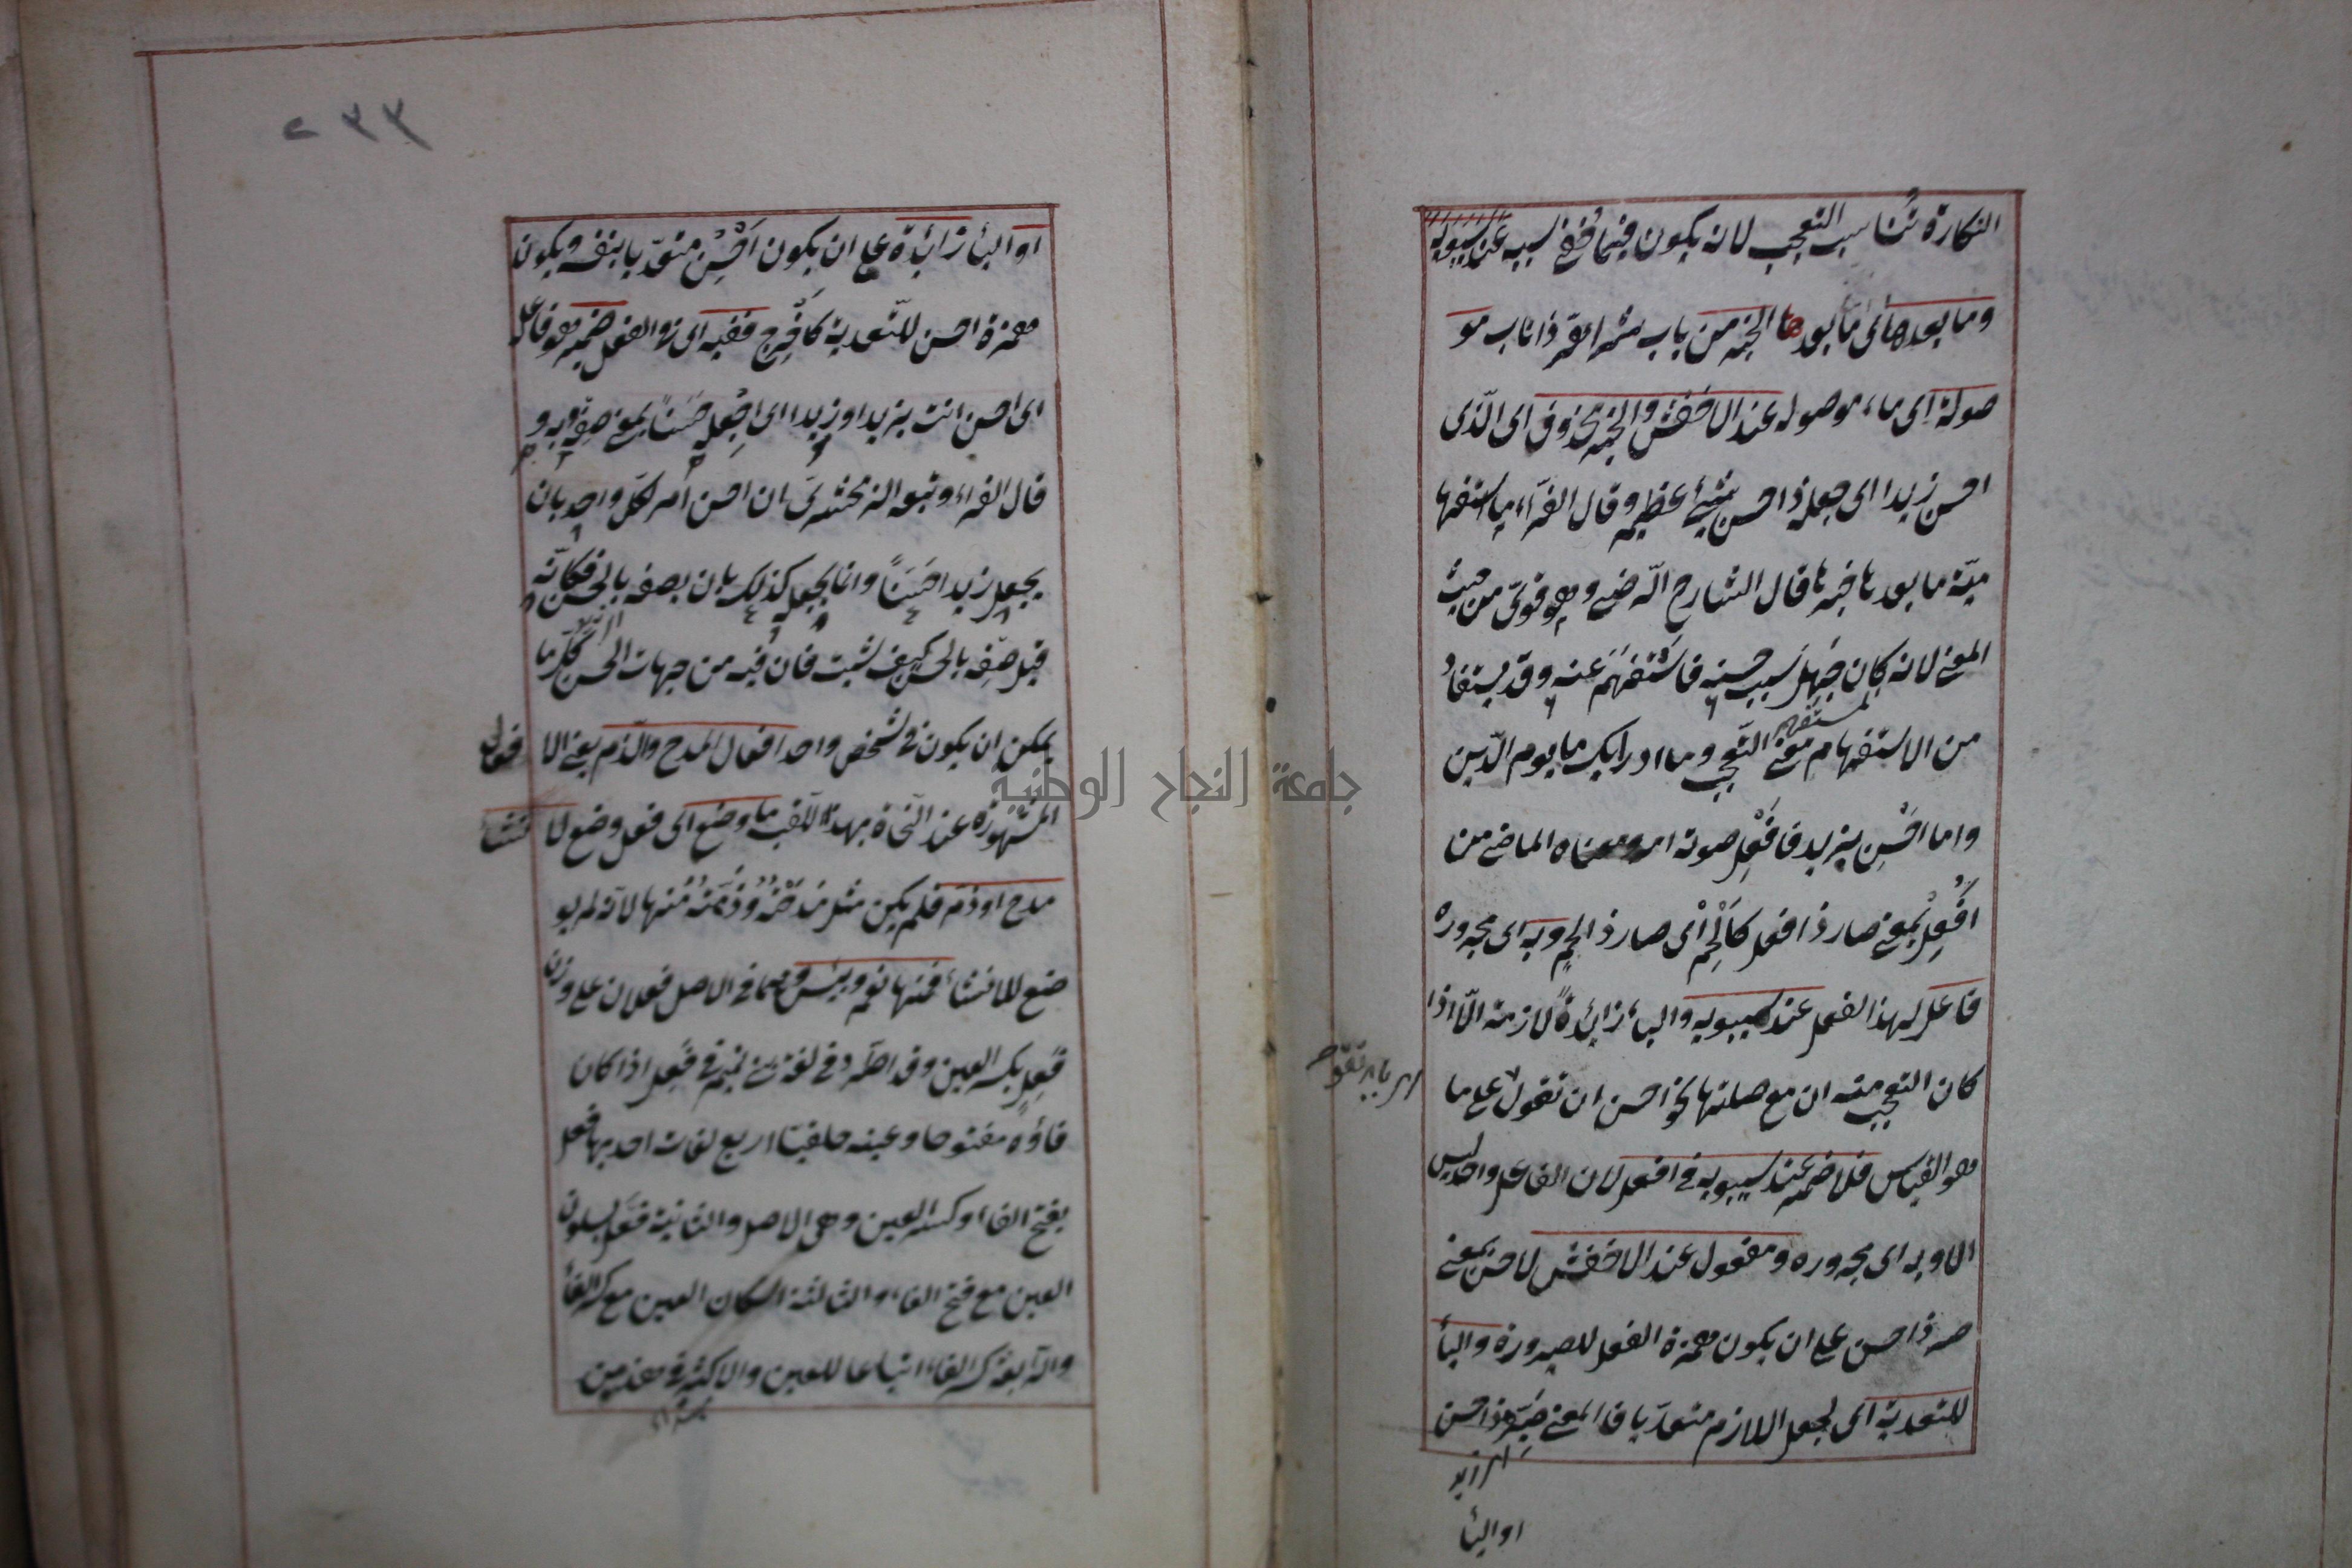 النكارة تُناسب التعجب لانه يكون فيما خفي سببه عند سيبويه
وما بعدها اى ما بعدها الخبر من باب شر اهرّ ذا ناب مو
صولة اى ما موصولة عند الاخفش والخبر محذوف اى الّذى
احسن زيدا اى جعله ذا حسن شيئ عظيم وقال الفرّاء ما استفها
ميّة ما بعدها خبرها قال الشارح الرّضى وهو قوىّ من حيث
المعنى لانه كان جهل سبب حسنه فاستفهم عنه وقد يستفاد
من الاستفهام معنى التعجب وما ادرايك ما يوم الدّين
واما احسِن بزيد فافعِل صورته امر ومعناه الماضى من
افعِلْ بمعنى صار ذا فعل كاَلْحِمْ اى صار ذا لحم وبه اى مجروره
فاعل لهذا الفعل عند سيبويه والباء زائدة لازمة الّا اذا
كان التعجب منه ان مع صلتها نحو احسن ان تقول على ما
هو القياس فلا ضمير عند سيبويه فى افعل لان الفاعل واحد ليس
الا وبه اى مجروره ومفعول عند الاخفش لاحسن بمعنى
صر ذا حسن على ان يكون همزة الفعل للصيرورة والباء
للتعدية اى لجعل اللازم متعدّيا فالمعنى صيّره ذا حسن
او الباء
٢٣٣
او الباء زائدة على ان يكون احْسِن متعدّيا بنفسه ويكون
همزة احسن للتعدية كاخرِج ففيه اى فى الفعل ضمير هو فاعله
اى احسن انت بزيد او زيدا اى اجعله حَسَناً بمعنى صِفْه به و
قال الفراء وتبعه الزمخشرىّ ان احسن امر لكلّ واحد بان
يجعل زيدا حَسَناً وانما يجعله كذلك بان يصفه بالحسن فكانّه
قيل صِفْه بالحسن كيف شئت فان فيه من جهات الحسن كلّ ما
يمكن ان يكون فى شخص واحد افعال المدح والذّم يعنى الا
فعال
المشهورة عند النّحاة بهذا اللّقب ما وضع اى فعل وضع لا
نشاء
مدح او ذمّ فلم يكن مثل مدحته وذممته منها لانّه لم يو
ضع للانشاء فمنها نعم وبئس وهما فى الاصل فعلان على وزن
فَعِل بكسر العين وقد اطّرد فى لغة بنى تميم فى فَعِل اذا كان
فاؤه مفتوحا وعينه حلقيّا اربع لغات احديها فَعِل
بفتح الفاء وكسر العين وهى الاصل والثانية فَعْل بسكون
العين مع فتح الفاء والثالثة اسكان العين مع كسر الفاء
والرّابعة كسر الفاء اتباعا للعين والاكثر فى هذين
جامعة النجاح الوطنية